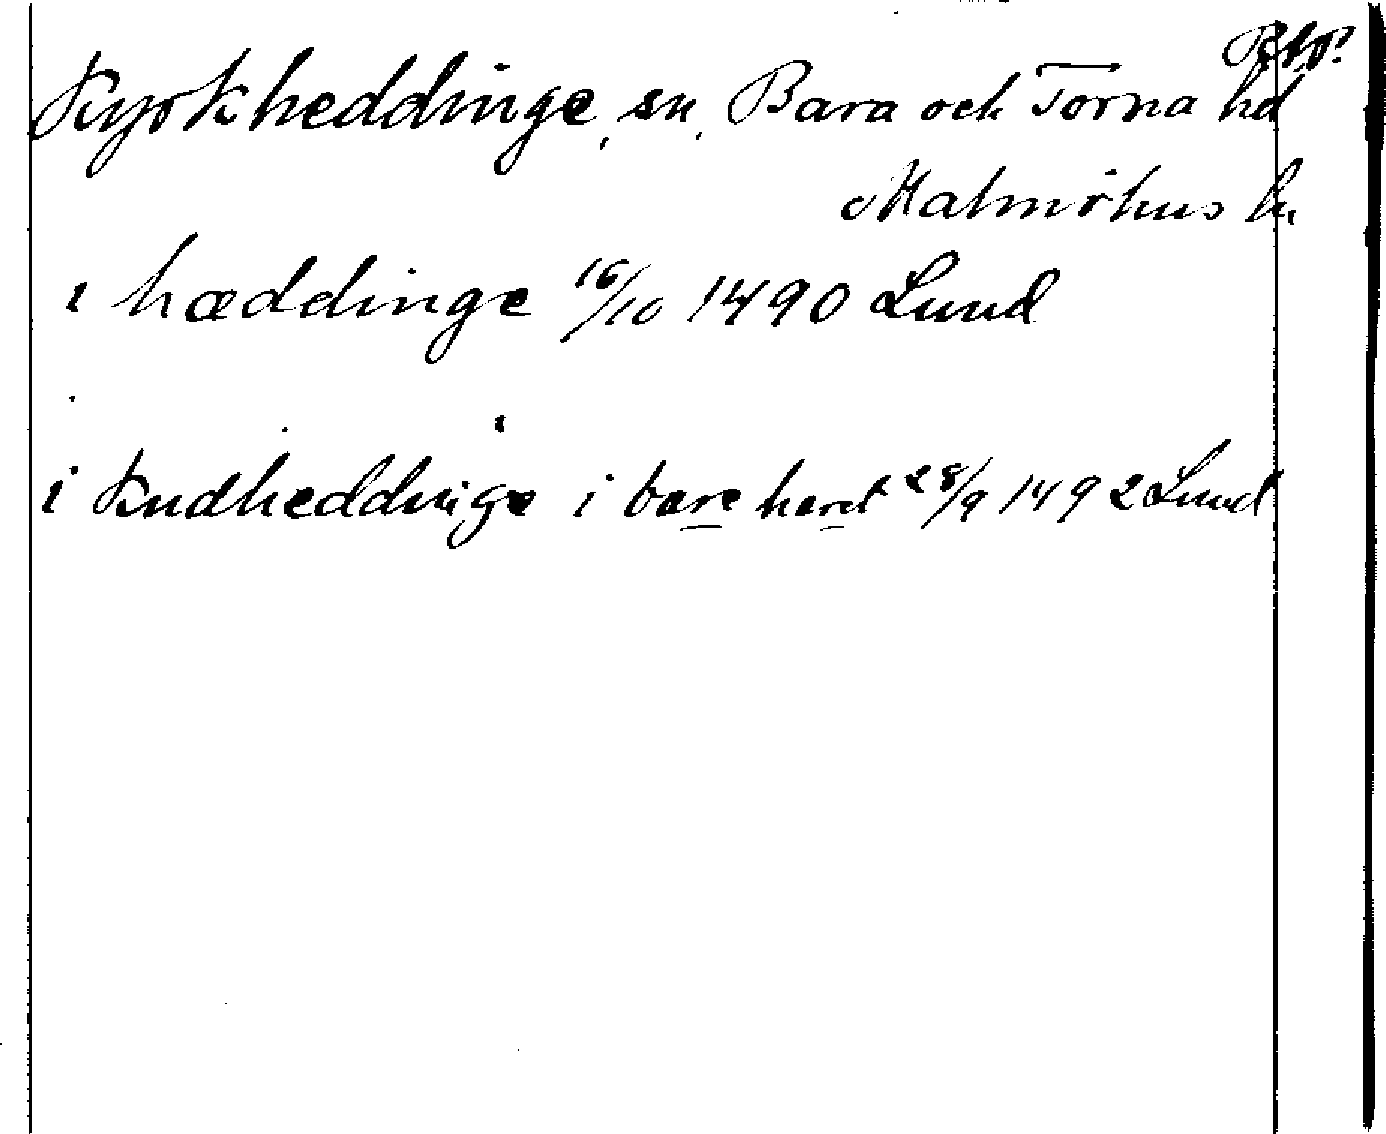 Kyrkheddinge, sn, Bara och Torna hd
Malmöhus l.
i hæddinge 16/10 1490 Lund
i Kndheddinge i bare heret 28/9 1492 Lund